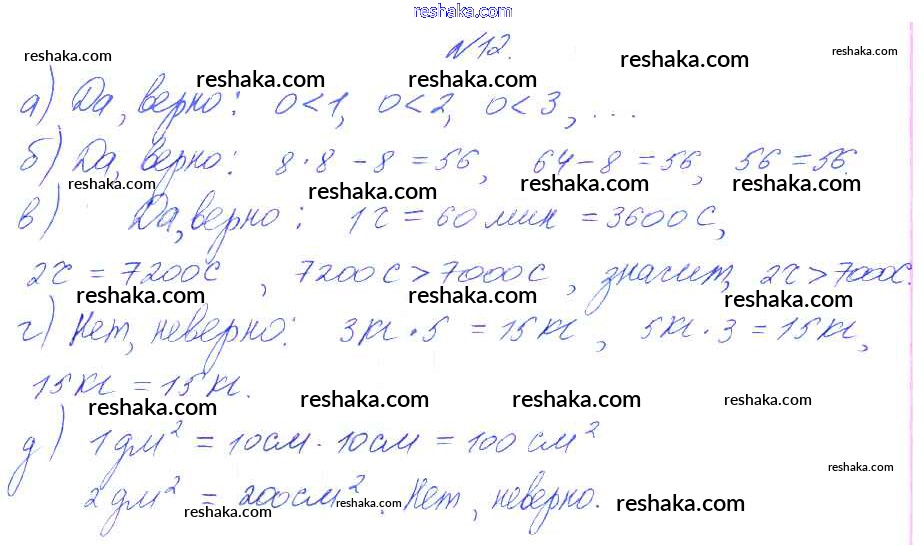 reshaka.com
№12.
reshaka.com reshaka.com reshaka.com reshaka.com reshaka.com
а) Да, верно: 0<1, 0<2, 0<3, ...
б) Да, верно: 8·8-8=56, 64-8=56, 56=56.
reshaka.com reshaka.com reshaka.com reshaka.com
в) Да, верно: 1ч = 60 мин = 3600 с,
2ч = 7200с, 7200с > 7000с, значит, 2ч > 7000с.
reshaka.com reshaka.com reshaka.com
г) Нет, неверно: 3кг·5 = 15кг, 5кг·3 = 15кг,
15кг = 15кг.
reshaka.com reshaka.com reshaka.com reshaka.com
д) 1дм² = 10см·10см = 100 см²
reshaka.com
2дм² = 200см². Нет, неверно.
reshaka.com reshaka.com reshaka.com